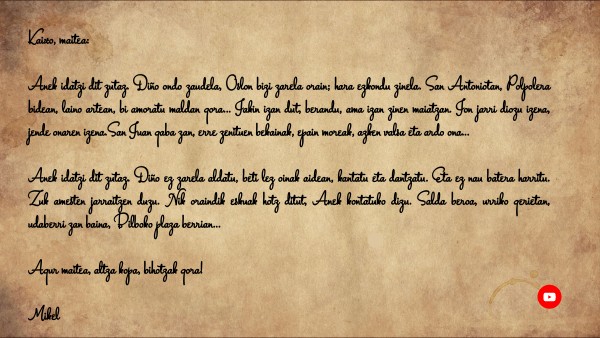 Kaixo, maitea:
Anek idatzi dit zutaz. Diño ondo zaudela, Oslon bizi zarela orain; hara ezkondu zinela. San Antoniotan, Polpolera
bidean, laino artean, bi amoratu maldan gora... Jakin izan dut, berandu, ama izan zinen maiatzan. Jon jarri diozu izena,
jende onaren izena.San Juan gaba zan, erre zenituen bekainak, epain moreak, azken valsa eta ardo ona...
Anek idatzi dit zutaz. Diño ez zarela aldatu, beti lez oinak aidean, kantatu eta dantzatu. Eta ez nau batera harritu.
Zuk amesten jarraitzen duzu. Nik oraindik eskuak hotz ditut, Anek kontatuko dizu. Salda beroa, urriko gerietan,
udaberri zan baina, Bilboko plaza berrian...
Agur maitea, altza kopa, bihotzak gora!
Mikel